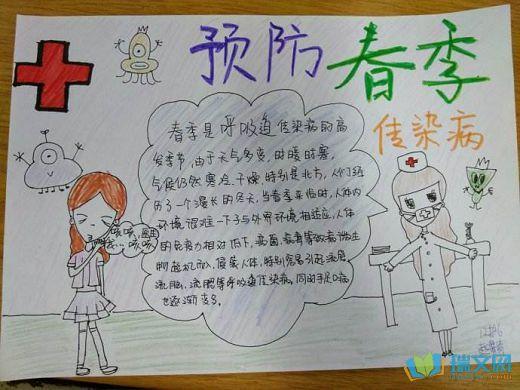 预防春季
传染病
春季是呼吸道传染病的高
发季节,由于天气多变,时暖时寒,
气候仍然寒冷、干燥,特别是北方,人们经
历了一个漫长的冬天,当春季来临时,人体内
环境很难一下子与外界环境相适应,人体
的免疫力相对低下,细菌、病毒等致病微生
物趁机而入,侵袭人体,特别容易引起流感、
流脑、流腮等呼吸道传染病,同时手足口病
也逐渐
咳咳
咳咳
12班
瑞文网